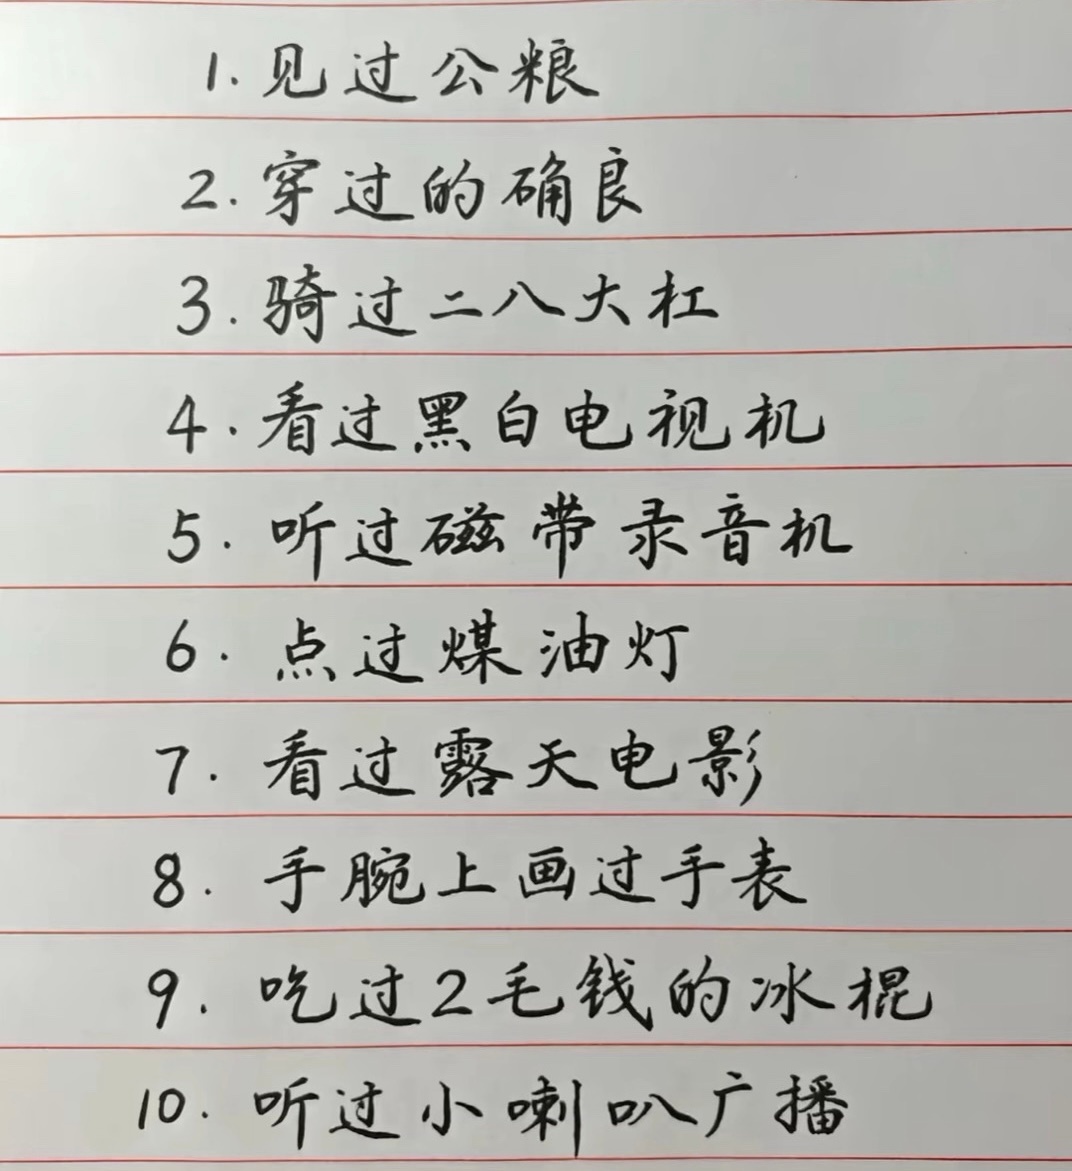 1. 见过公粮
2. 穿过的确良
3. 骑过二八大杠
4. 看过黑白电视机
5. 听过磁带录音机
6. 点过煤油灯
7. 看过露天电影
8. 手腕上画过手表
9. 吃过2毛钱的冰棍
10. 听过小喇叭广播